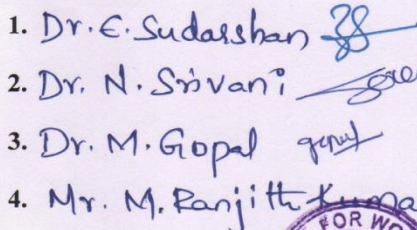 1. Dr. E. Sudarshan
2. Dr. N. Srivani
3. Dr. M. Gopal
4. Mr. M. Ranjith Kuma
FOR WO